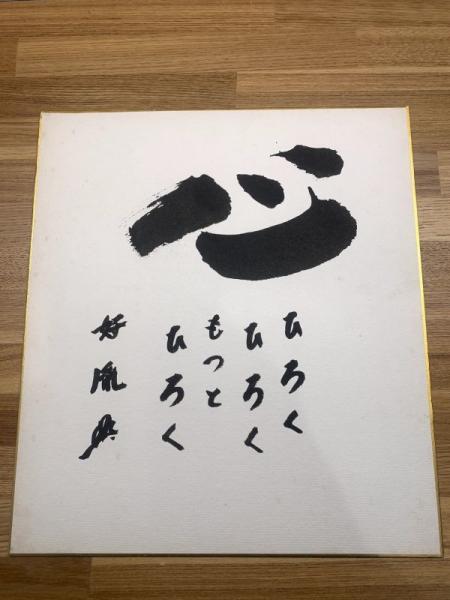 心
ひろく
ひろく
もっと
ひろく
好胤